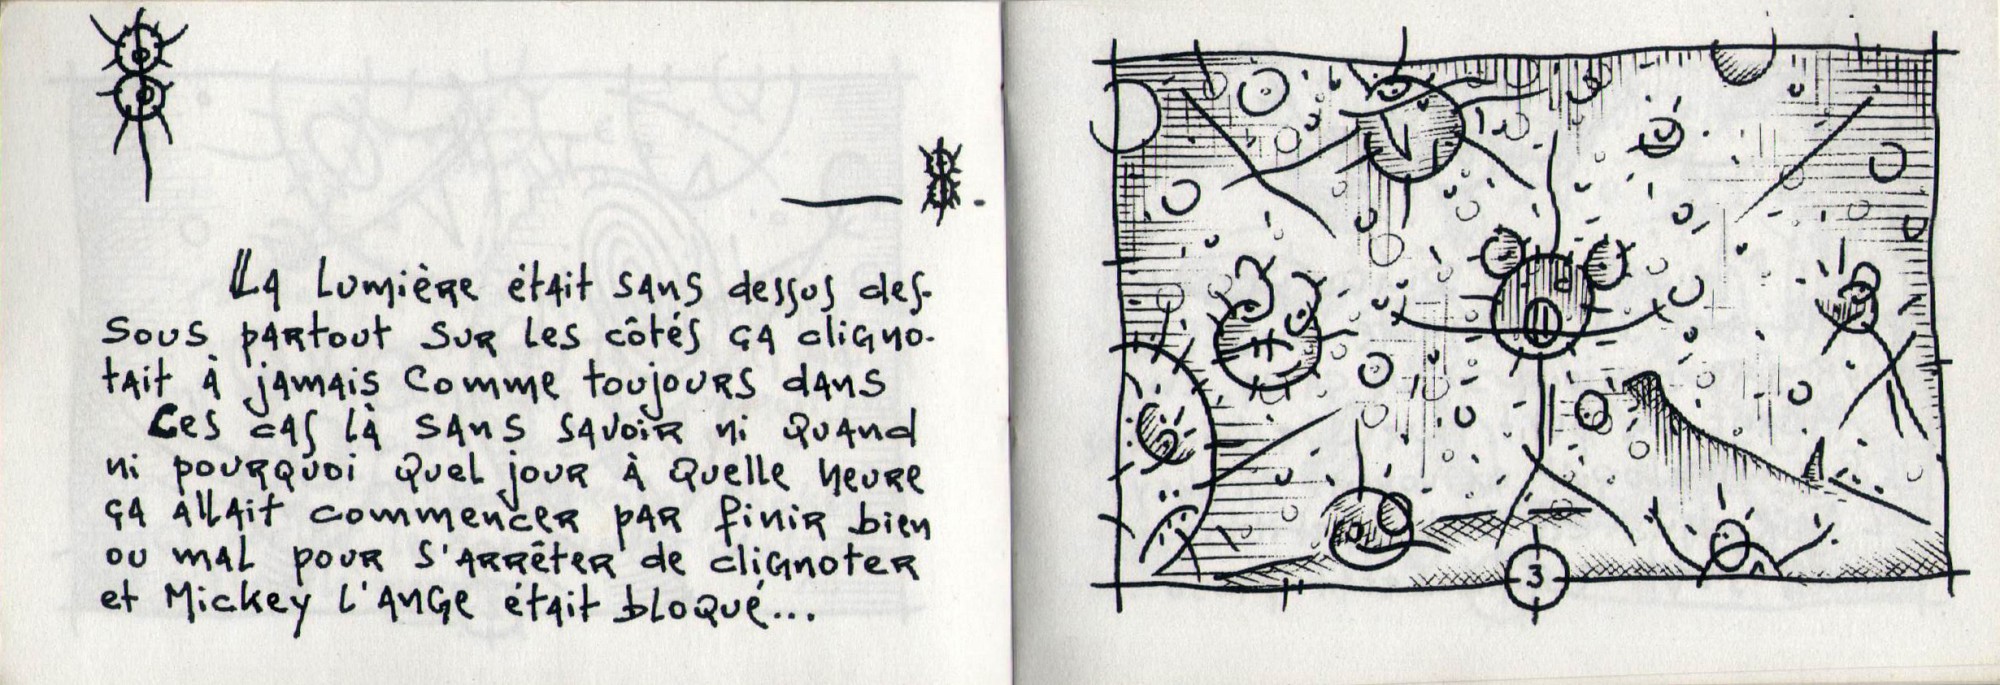 La lumière était sans dessus des-
sous partout sur les côtés ça cligno-
tait à jamais comme toujours dans
ces cas là sans savoir ni quand
ni pourquoi quel jour à quelle heure
ça allait commencer par finir bien
ou mal pour s'arrêter de clignoter
et Mickey l'ange était bloqué...
3